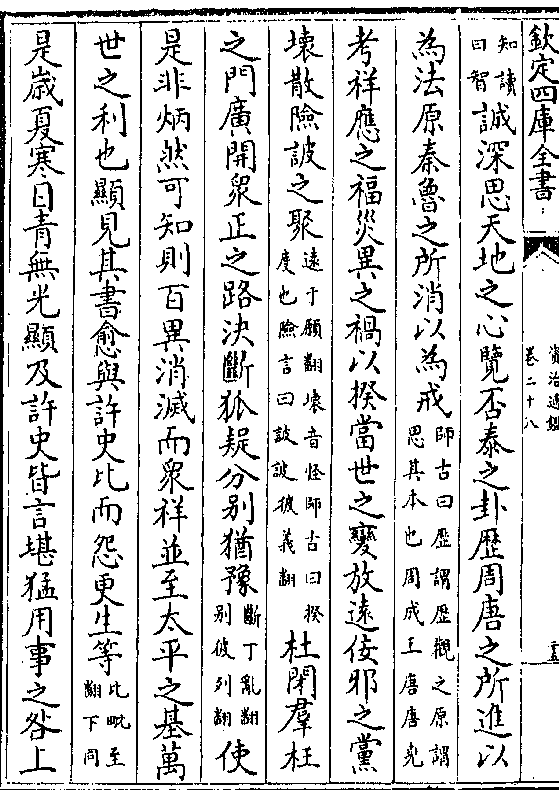 欽定四庫全書
資治通鑑
卷二十八
知讀曰智誠深思天地之心覽否泰之卦歷周唐之所進以
為法原秦魯之所消以為戒師古曰歷謂歷觀之原謂思其本也周成王唐唐堯
考祥應之福災異之禍以揆當世之變放逺佞邪之黨
壞散險詖之聚逺于願翻壞音怪師古曰揆度也險言曰詖詖彼義翻杜閉羣枉
之門廣開衆正之路決斷狐疑分别猶豫斷丁亂翻别彼列翻使
是非炳然可知則百異消滅而衆祥並至太平之基萬
世之利也顯見其書愈與許史比而怨更生等比毗至翻下同
是歲夏寒日青無光顯及許史皆言堪猛用事之咎上